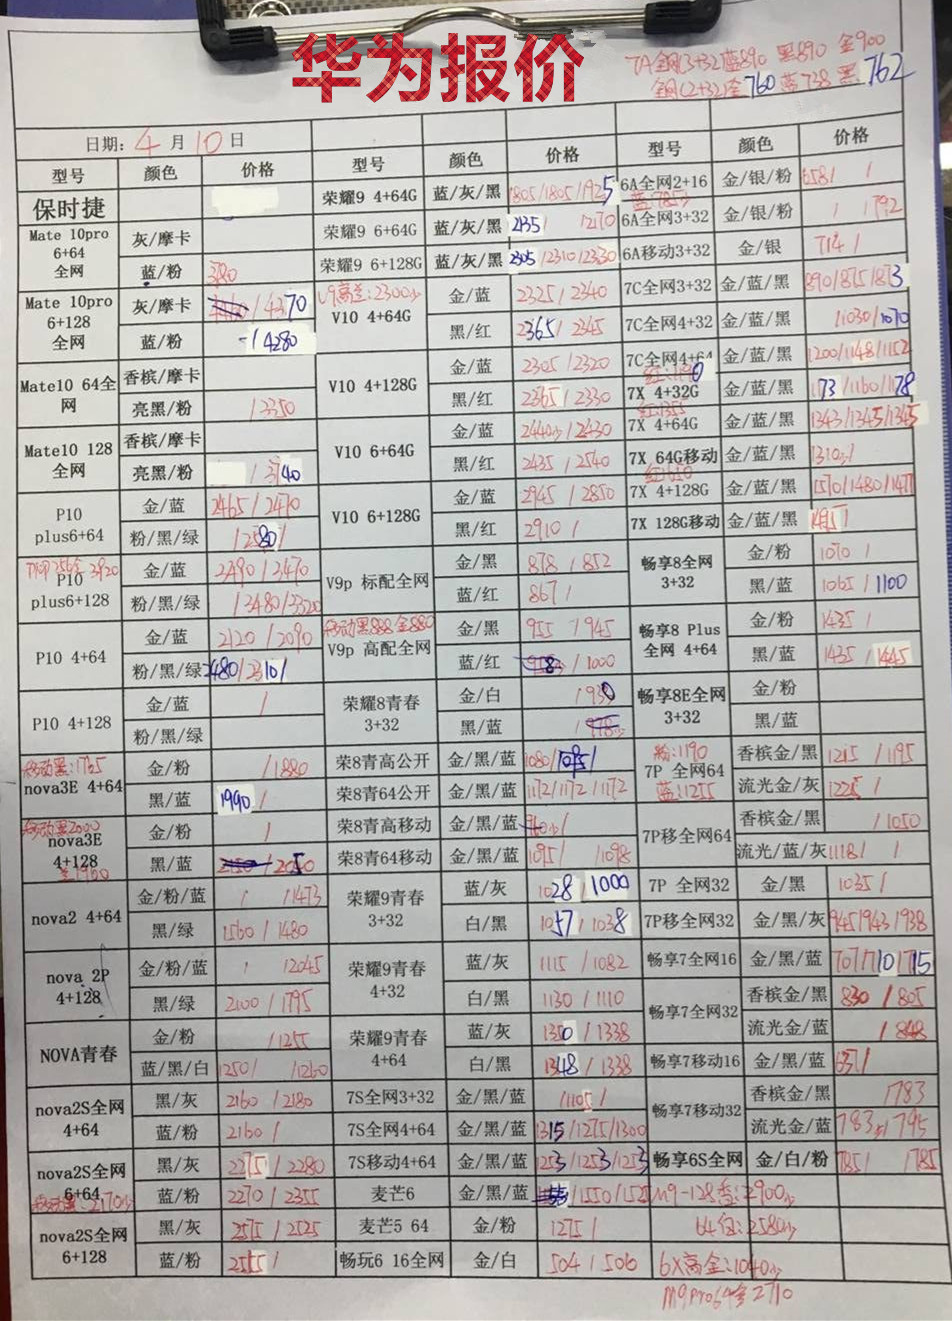 华为报价
7A全网(3+32)蓝890 黑890 金900
全网(2+32)金760 蓝738 黑762
日期: 4 月 10 日
型号 颜色 价格 型号 颜色 价格 型号 颜色 价格
保时捷
荣耀9 4+64G 蓝/灰/黑 1805/1805/1925
6A全网2+16 金/银/粉 658/ /
Mate 10pro 6+64 全网 灰/摩卡
蓝/粉
荣耀9 6+64G 蓝/灰/黑 2135/ 1270
6A全网3+32 金/银/粉 / /792
荣耀9 6+128G 蓝/灰/黑 2305/2310/2330
6A移动3+32 金/银 714/
Mate 10pro 6+128 全网 灰/摩卡 /4370
蓝/粉 -/4280
V10 4+64G 金/蓝 2325/2340
黑/红 2365/2345
7C全网3+32 金/蓝/黑 890/875/873
7C全网4+32 金/蓝/黑 /1030/1070
Mate10 64全网 香槟/摩卡
亮黑/粉 /3350
V10 4+128G 金/蓝 2305/2320
黑/红 2365/2330
7C全网4+64 金/蓝/黑 1200/1148/1152
红:1190
7X 4+32G 金/蓝/黑 1173/1160/1178
Mate10 128全网 香槟/摩卡
亮黑/粉 /3740
V10 6+64G 金/蓝 2440/2430
黑/红 2435/2540
红:1355
7X 4+64G 金/蓝/黑 1343/1345/1345
7X 64G移动 金/蓝/黑 1310/
P10 plus6+64 金/蓝 2465/2470
粉/黑/绿 /2580/
V10 6+128G 金/蓝 2945/2850
黑/红 2910/
红1650
7X 4+128G 金/蓝/黑 1570/1480/1477
7X 128G移动 金/蓝/黑 1457/
P10 plus6+128 金/蓝 3490/3470
粉/黑/绿 /3480/3320
V9p 标配全网 金/黑 878/852
蓝/红 867/
畅享8全网 3+32 金/粉 1070/
黑/蓝 1065/1100
P10 4+64 金/蓝 2120/2090
粉/黑/绿 2480/2310/
移动黑888 金880
V9p 高配全网 金/黑 955/945
蓝/红 /1000
畅享8 Plus 全网 4+64 金/粉 1435/
黑/蓝 1435/1445
P10 4+128 金/蓝 /
粉/黑/绿
荣耀8青春 3+32 金/白 /930
黑/蓝
畅享8E全网 3+32 金/粉
黑/蓝
移动黑:1765
nova3E 4+64 金/粉 /1880
黑/蓝 1990/
荣8青高公开 金/黑/蓝 1080/1085/
荣8青64公开 金/黑/蓝 1172/1172/1172
粉:1190
7P 全网64
蓝:1255
香槟金/黑 1215/1195
流光金/灰 1225/
移动黑2000
nova3E 4+128
金1960
金/粉 /
黑/蓝 /2050
荣8青高移动 金/黑/蓝 960/
荣8青64移动 金/黑/蓝 1095/ /1098
7P移全网64 香槟金/黑 /1050
流光/蓝/灰 1118/ /
nova2 4+64 金/粉/蓝 / /1473
黑/绿 1560/1480
荣耀9青春 3+32 蓝/灰 1028/1000
白/黑 1057/1038
7P 全网32 金/黑 1035/
7P移全网32 金/黑/灰 945/943/938
nova 2P 4+128 金/粉/蓝 / /2045
黑/绿 2100/1795
荣耀9青春 4+32 蓝/灰 1115/1082
白/黑 1130/1110
畅享7全网16 金/黑/蓝 701/710/715
畅享7全网32 香槟金/黑 830/805
流光金/蓝 /848
NOVA青春 金/粉 /1255
蓝/黑/白 1250/ /1260
荣耀9青春 4+64 蓝/灰 1350/1338
白/黑 1348/1338
畅享7移动16 金/黑/蓝 637/
nova2S全网 4+64 黑/灰 2160/2180
蓝/粉 2160/
7S全网3+32 金/黑/蓝 /1105/
7S全网4+64 金/黑/蓝 1315/1275/1300
畅享7移动32 香槟金/黑 /783
流光金/蓝 783/795
nova2S全网 6+64 黑/灰 2275/2280
蓝/粉 2270/2355
7S移动4+64 金/黑/蓝 1253/1253/1253
畅享6S全网 金/白/粉 785/ /785
麦芒6 金/黑/蓝 /1550/1525
M9-128香:2900
nova2S全网 6+128 黑/灰 2575/2525
蓝/粉 2555/
麦芒5 64 金/粉 1275/
64白:2580
畅玩6 16全网 金/白 504/506
6X高金:1040
M9Pro64香2710